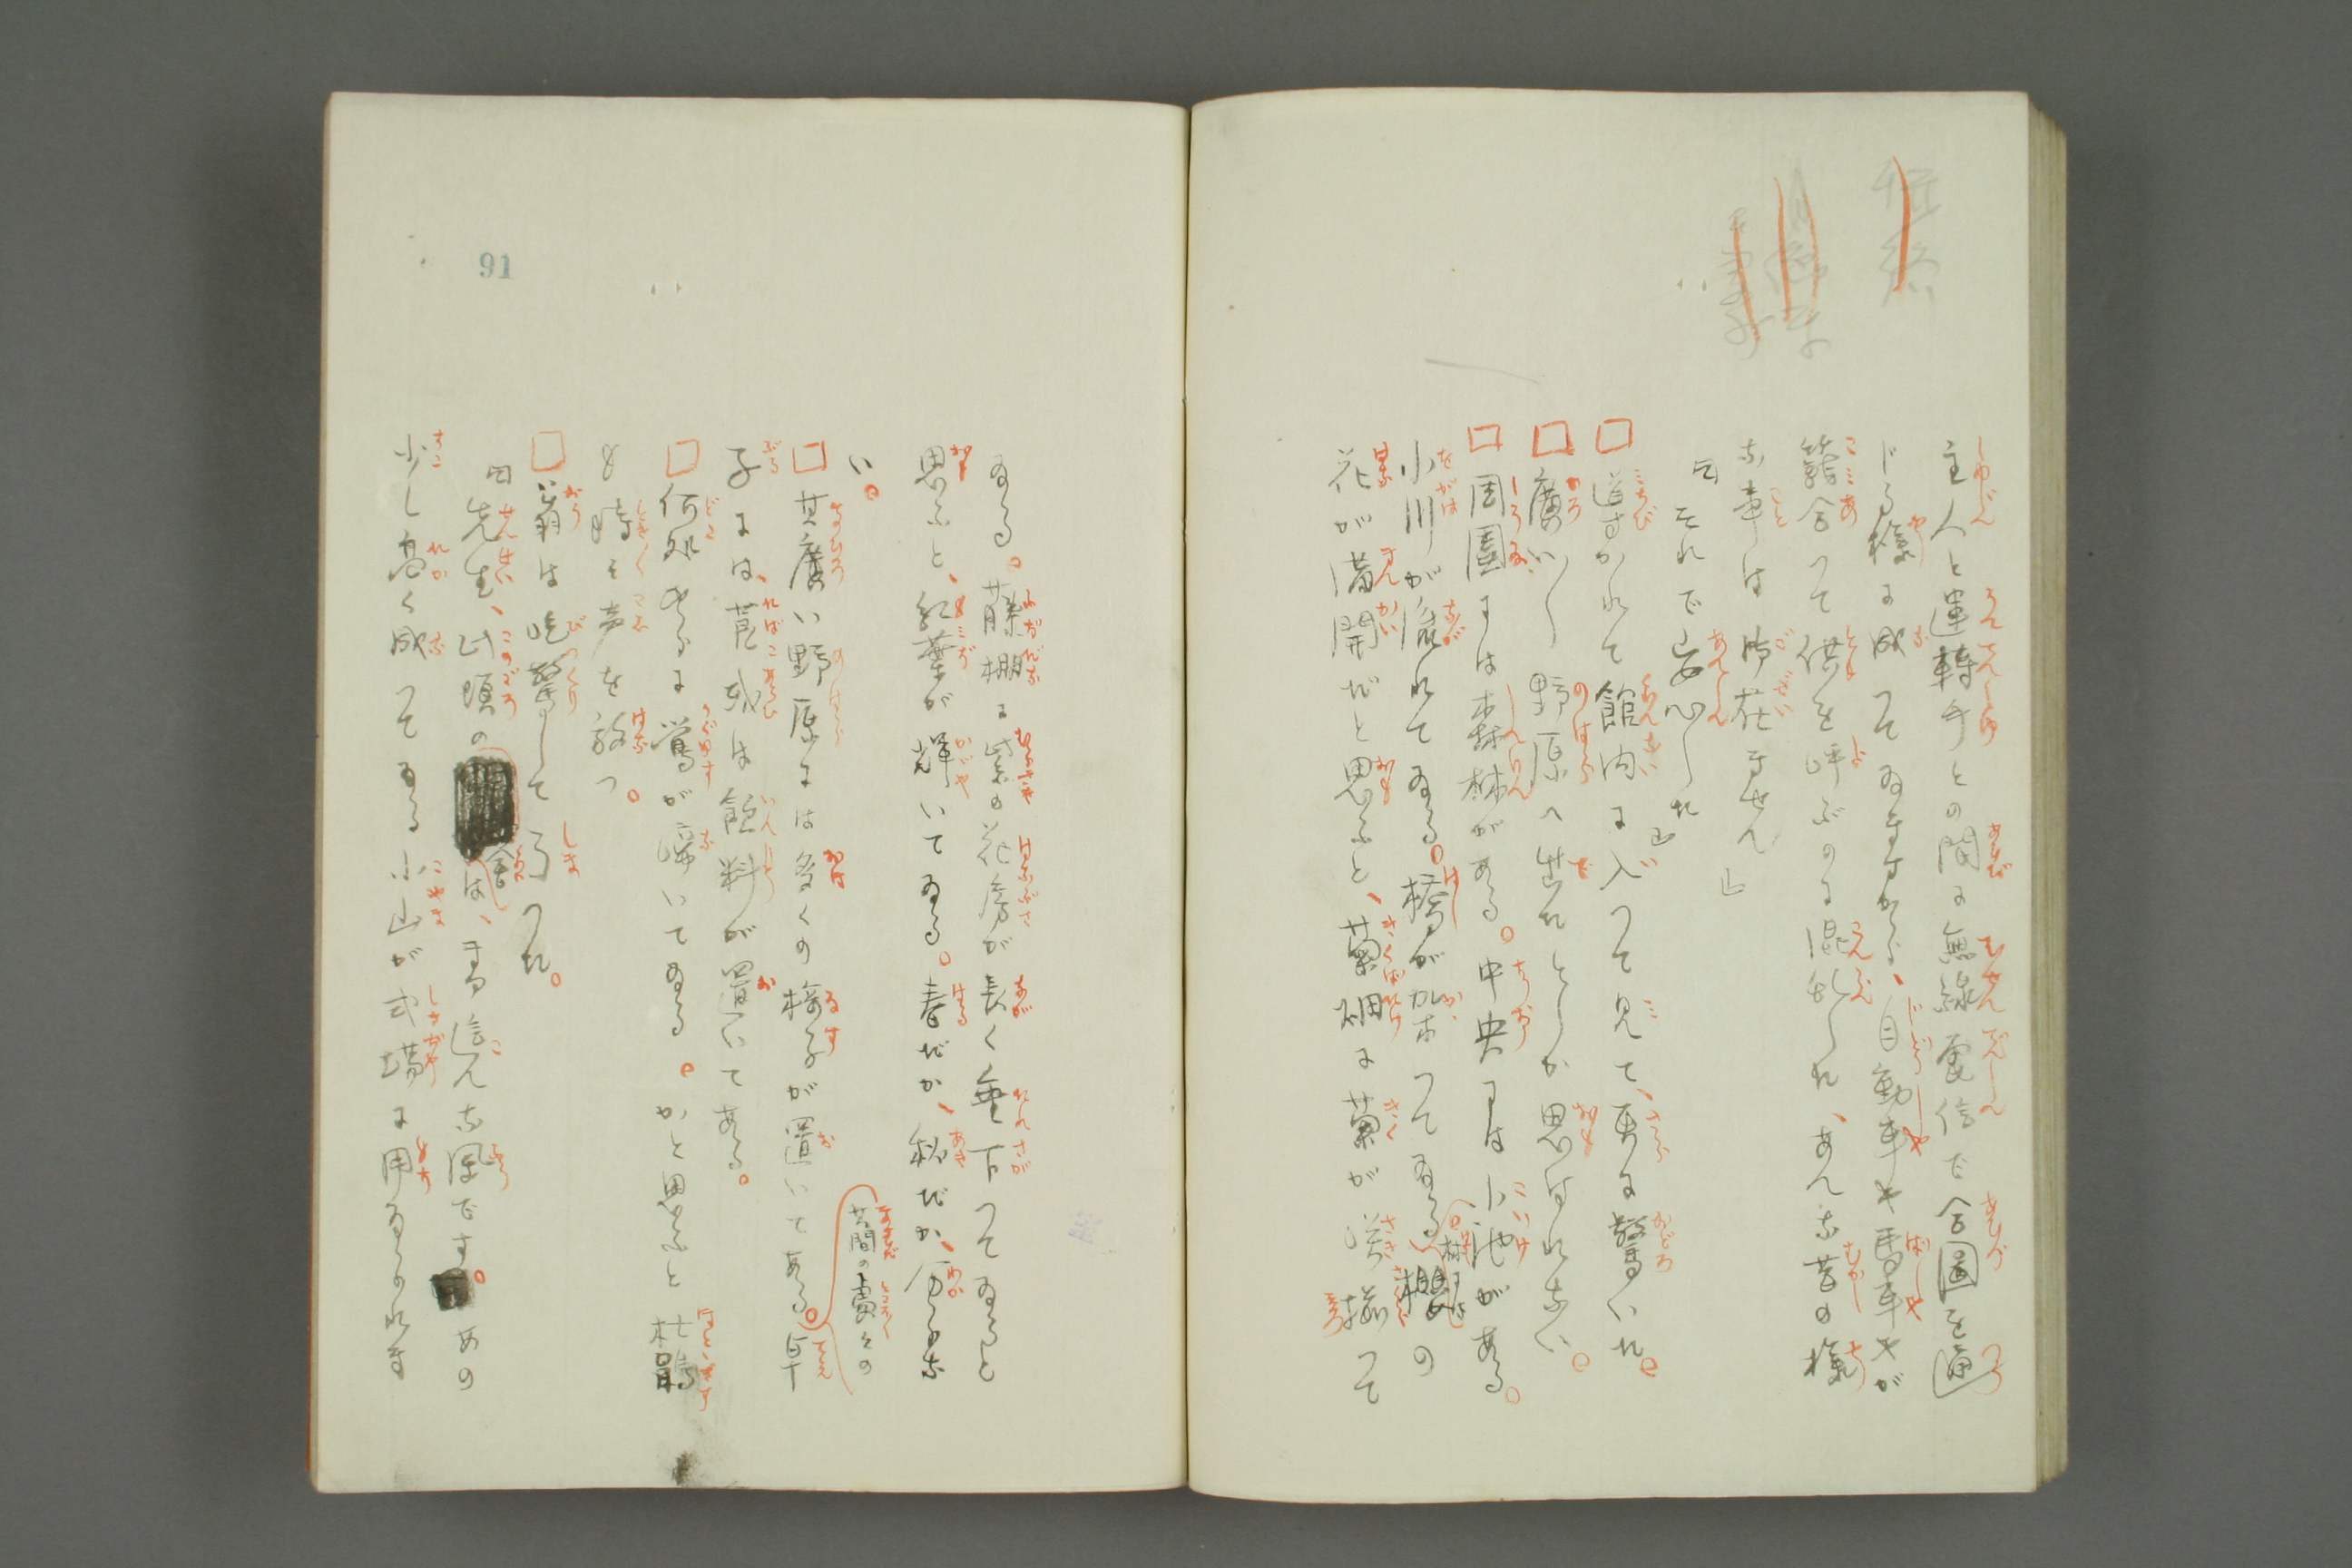 主人と運轉手との間に無線電信で合圖を通
じる様に成つてゐますから、自動車や馬車やが
籍合つて供を呼ぶのに混乱した、あんな昔の様
な事は御在ません」
「それで安心した」
□導かれて館内に入つて見て、更に驚いた。
□廣い〱野原へ出たとしか思はれない。
□周圍には森林がある。中央には小池がある。
小川が流れてゐる。橋が架つてゐる。櫻の
花が満開だと思ふと、菊畑に菊が咲揃つて
ゐる。藤棚に紫の花房が長く垂下つてゐると
思ふと、紅葉が輝いてゐる。春だか、秋だか、分らな
い。
□其廣い野原には多くの椅子が置いてある。卓
其間の處々の
子には、莨或は飲料が置いてある。
□何処やらに鶯が啼いてゐる。かと思ふと杜鵑
も時々声を放つ。
□翁は吃驚して了つた。
「先生、此頃の館は、まア這んな風です。あの
少し高く成つてゐる小山が式場に用ゐられま
91